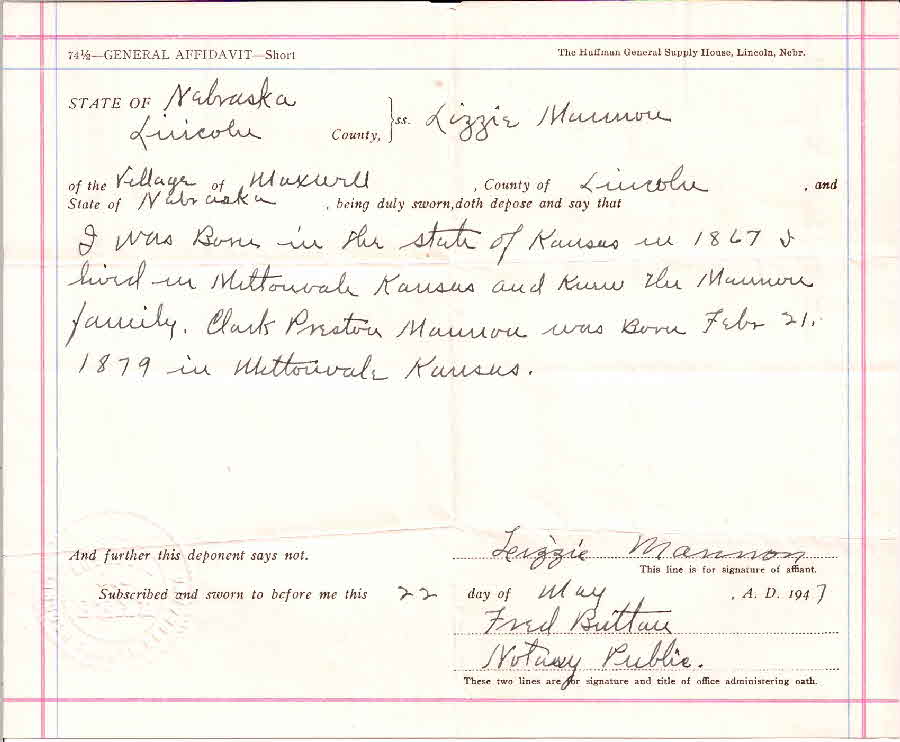 74½—GENERAL AFFIDAVIT—Short
The Huffman General Supply House, Lincoln, Nebr.
STATE OF Nebraska
Lincoln County, } ss. Lizzie Mannon
of the Village of Maxwell , County of Lincoln , and
State of Nebraska , being duly sworn, doth depose and say that
I was Born in the state of Kansas in 1867 I
lived in Miltonvale Kansas and knew the Mannon
family. Clark Preston Mannon was Born Febr 21.
1879 in Miltonvale Kansas.
And further this deponent says not.
Lizzie Mannon
This line is for signature of affiant.
Subscribed and sworn to before me this 22 day of May , A. D. 1947
Fred Buttau
Notary Public.
These two lines are for signature and title of office administering oath.